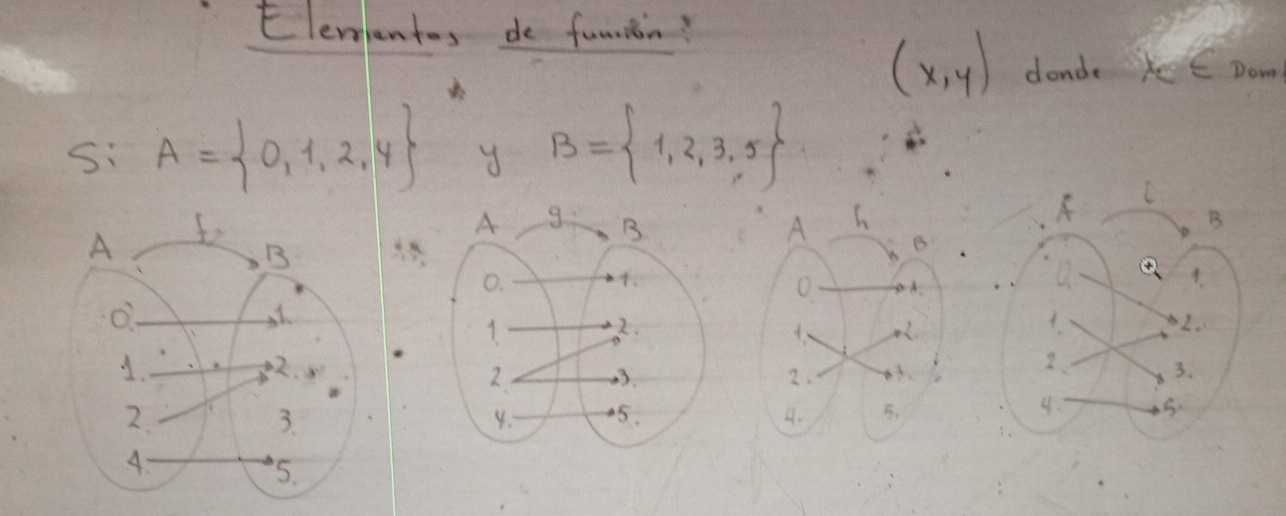 Elementos de función:
(x,y) donde x ∈ Dom
Si A = {0, 1, 2, 4} y B = {1, 2, 3, 5}
A f B
0. 1.
1. 2.
2. 3.
4. 5.
A g B
0. 1.
1. 2.
2. 3.
4. 5.
A h B
0. 1.
1. 2.
2. 3.
4. 5.
A i B
0. 1.
1. 2.
2. 3.
4. 5.